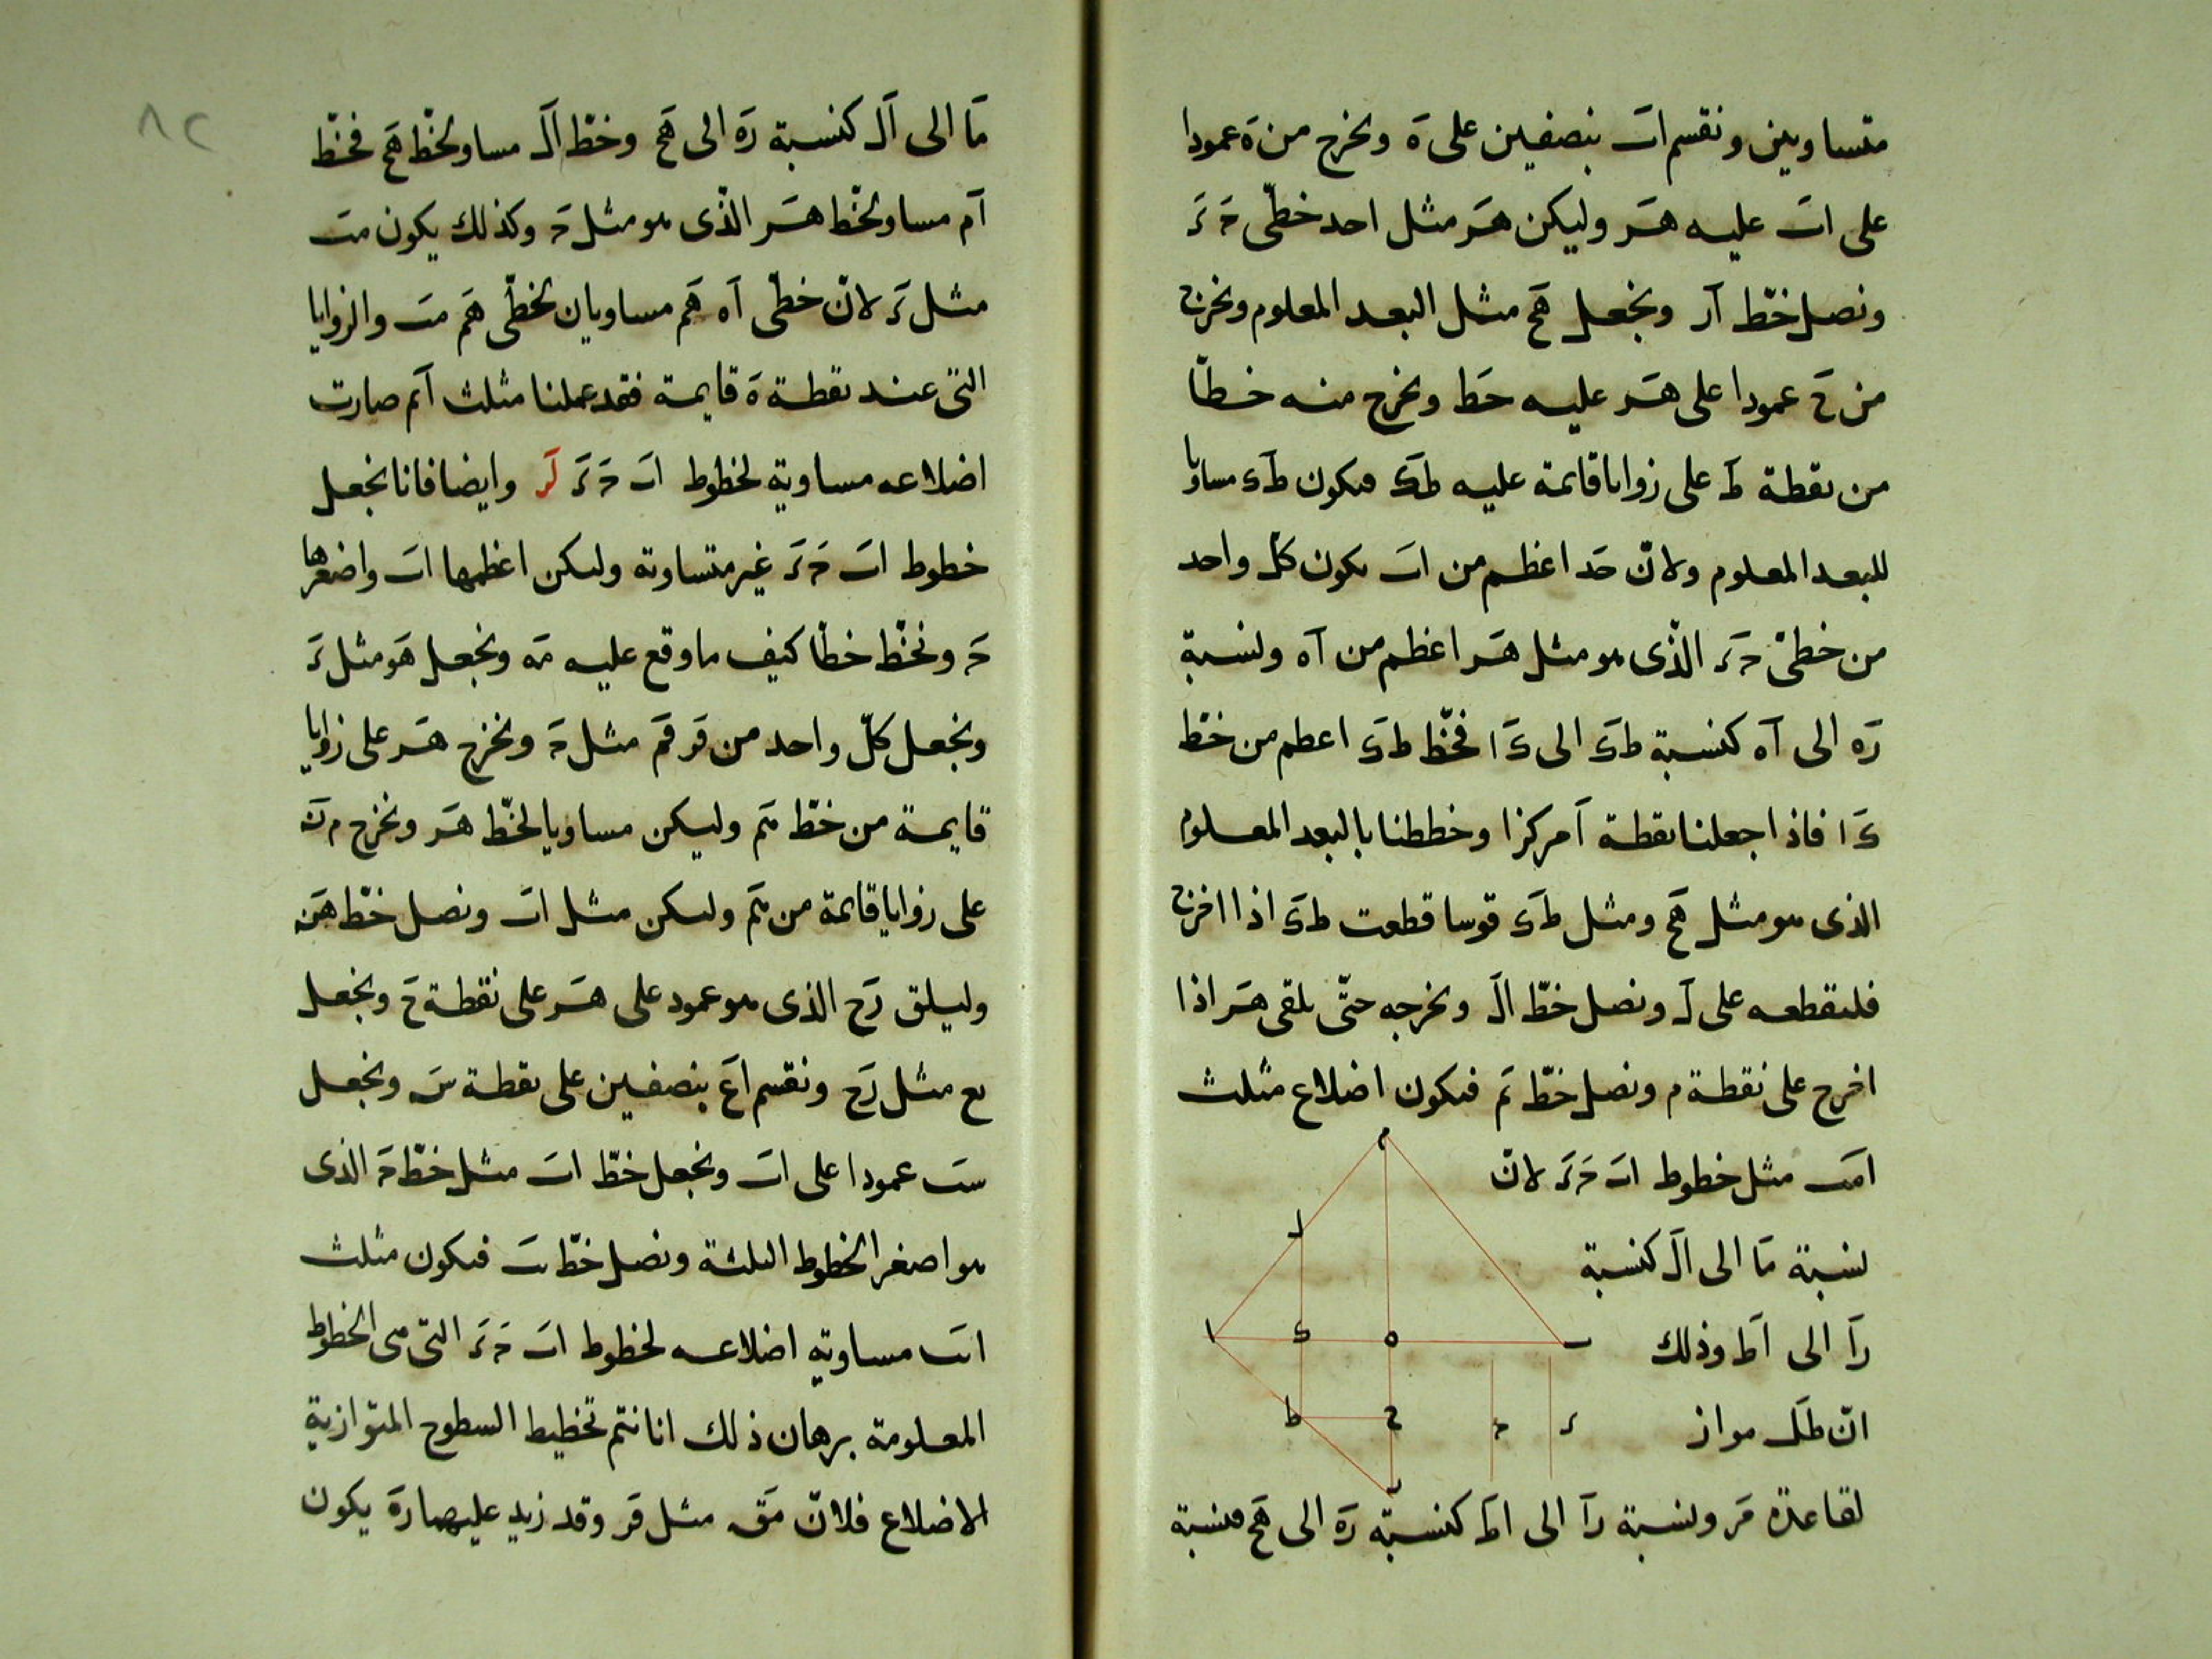 متساويين ونقسم اب بنصفين على ه ونخرج من ه عمودا
على اب عليه هز وليكن هز مثل احد خطى ج د
ونصل خط از ونجعل هح مثل البعد المعلوم ونخرج
من ح عمودا على هز عليه حط ونخرج منه خطا
من نقطة ط على زوايا قائمة عليه طك فيكون طك مساويا
للبعد المعلوم ولان جد اعظم من اب يكون كل واحد
من خطى ج د الذى هو مثل هز اعظم من اه ونسبة
زه الى اه كنسبة طك الى كا فخط طك اعظم من خط
كا فاذا جعلنا نقطة ا مركزا وخططنا بالبعد المعلوم
الذى هو مثل هح ومثل طك قوسا قطعت طك اذا اخرج
فليقطعه على ل ونصل خط ال ونخرجه حتى يلقى هز اذا
اخرج على نقطة م ونصل خط بم فيكون اضلاع مثلث
امب مثل خطوط اب ج د لان
نسبة ما الى ال كنسبة
زا الى اط وذلك
ان طل مواز
لقاعدة مز ونسبة زا الى اط كنسبة زه الى هح فنسبة
م
ل
ا ك ه ب
ط ح ج د
ز
٨٢
ما الى ال كنسبة زه الى هح وخط ال مساو لخط هح فخط
ام مساو لخط هز الذى هو مثل ج وكذلك يكون مب
مثل د لان خطى اه هم مساويان لخطى هم مب والزوايا
التى عند نقطة ه قايمة فقد عملنا مثلث ابم صارت
اضلاعه مساوية لخطوط اب ج د لر وايضا فانا نجعل
خطوط اب ج د غير متساوية وليكن اعظمها اب واصغرها
ج ونخط خطا كيف ما وقع عليه مه ونجعل هو مثل د
ونجعل كل واحد من قر قم مثل ج ونخرج هز على زوايا
قايمة من خط مم وليكن مساويا لخط هز ونخرج م ن
على زوايا قائمة من مم وليكن مثل اب ونصل خط هن
وليلق رح الذى هو عمود على هز على نقطة ح ونجعل
بع مثل رح ونقسم اع بنصفين على نقطة س ونجعل
ست عمودا على اب ونجعل خط ات مثل خط ج الذى
هو اصغر الخطوط الثلثة ونصل خط بت فيكون مثلث
ابت مساوية اضلاعه لخطوط اب ج د التى هى الخطوط
المعلومة برهان ذلك انا نتم تخطيط السطوح المتوازية
الاضلاع فلان مق مثل قر وقد زيد عليهما ره يكون